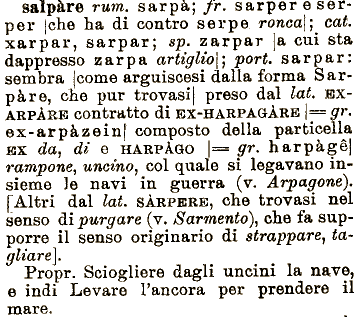 salpàre rum. sarpà; fr. sarper e ser-
per |che ha di contro serpe ronca|; cat.
xarpar, sarpar; sp. zarpar |a cui sta
dappresso zarpa artiglio|; port. sarpar:
sembra |come arguiscesi dalla forma Sar-
pàre, che pur trovasi| preso dal lat. EX-
ARPÀRE contratto di EX-HARPAGÀRE |= gr.
ex-arpàzein| composto della particella
EX da, di e HARPÀGO |= gr. harpàgê|
rampone, uncino, col quale si legavano in-
sieme le navi in guerra (v. Arpagone).
[Altri dal lat. SÀRPERE, che trovasi nel
senso di purgare (v. Sarmento), che fa sup-
porre il senso originario di strappare, ta-
gliare].
Propr. Sciogliere dagli uncini la nave,
e indi Levare l'ancora per prendere il
mare.